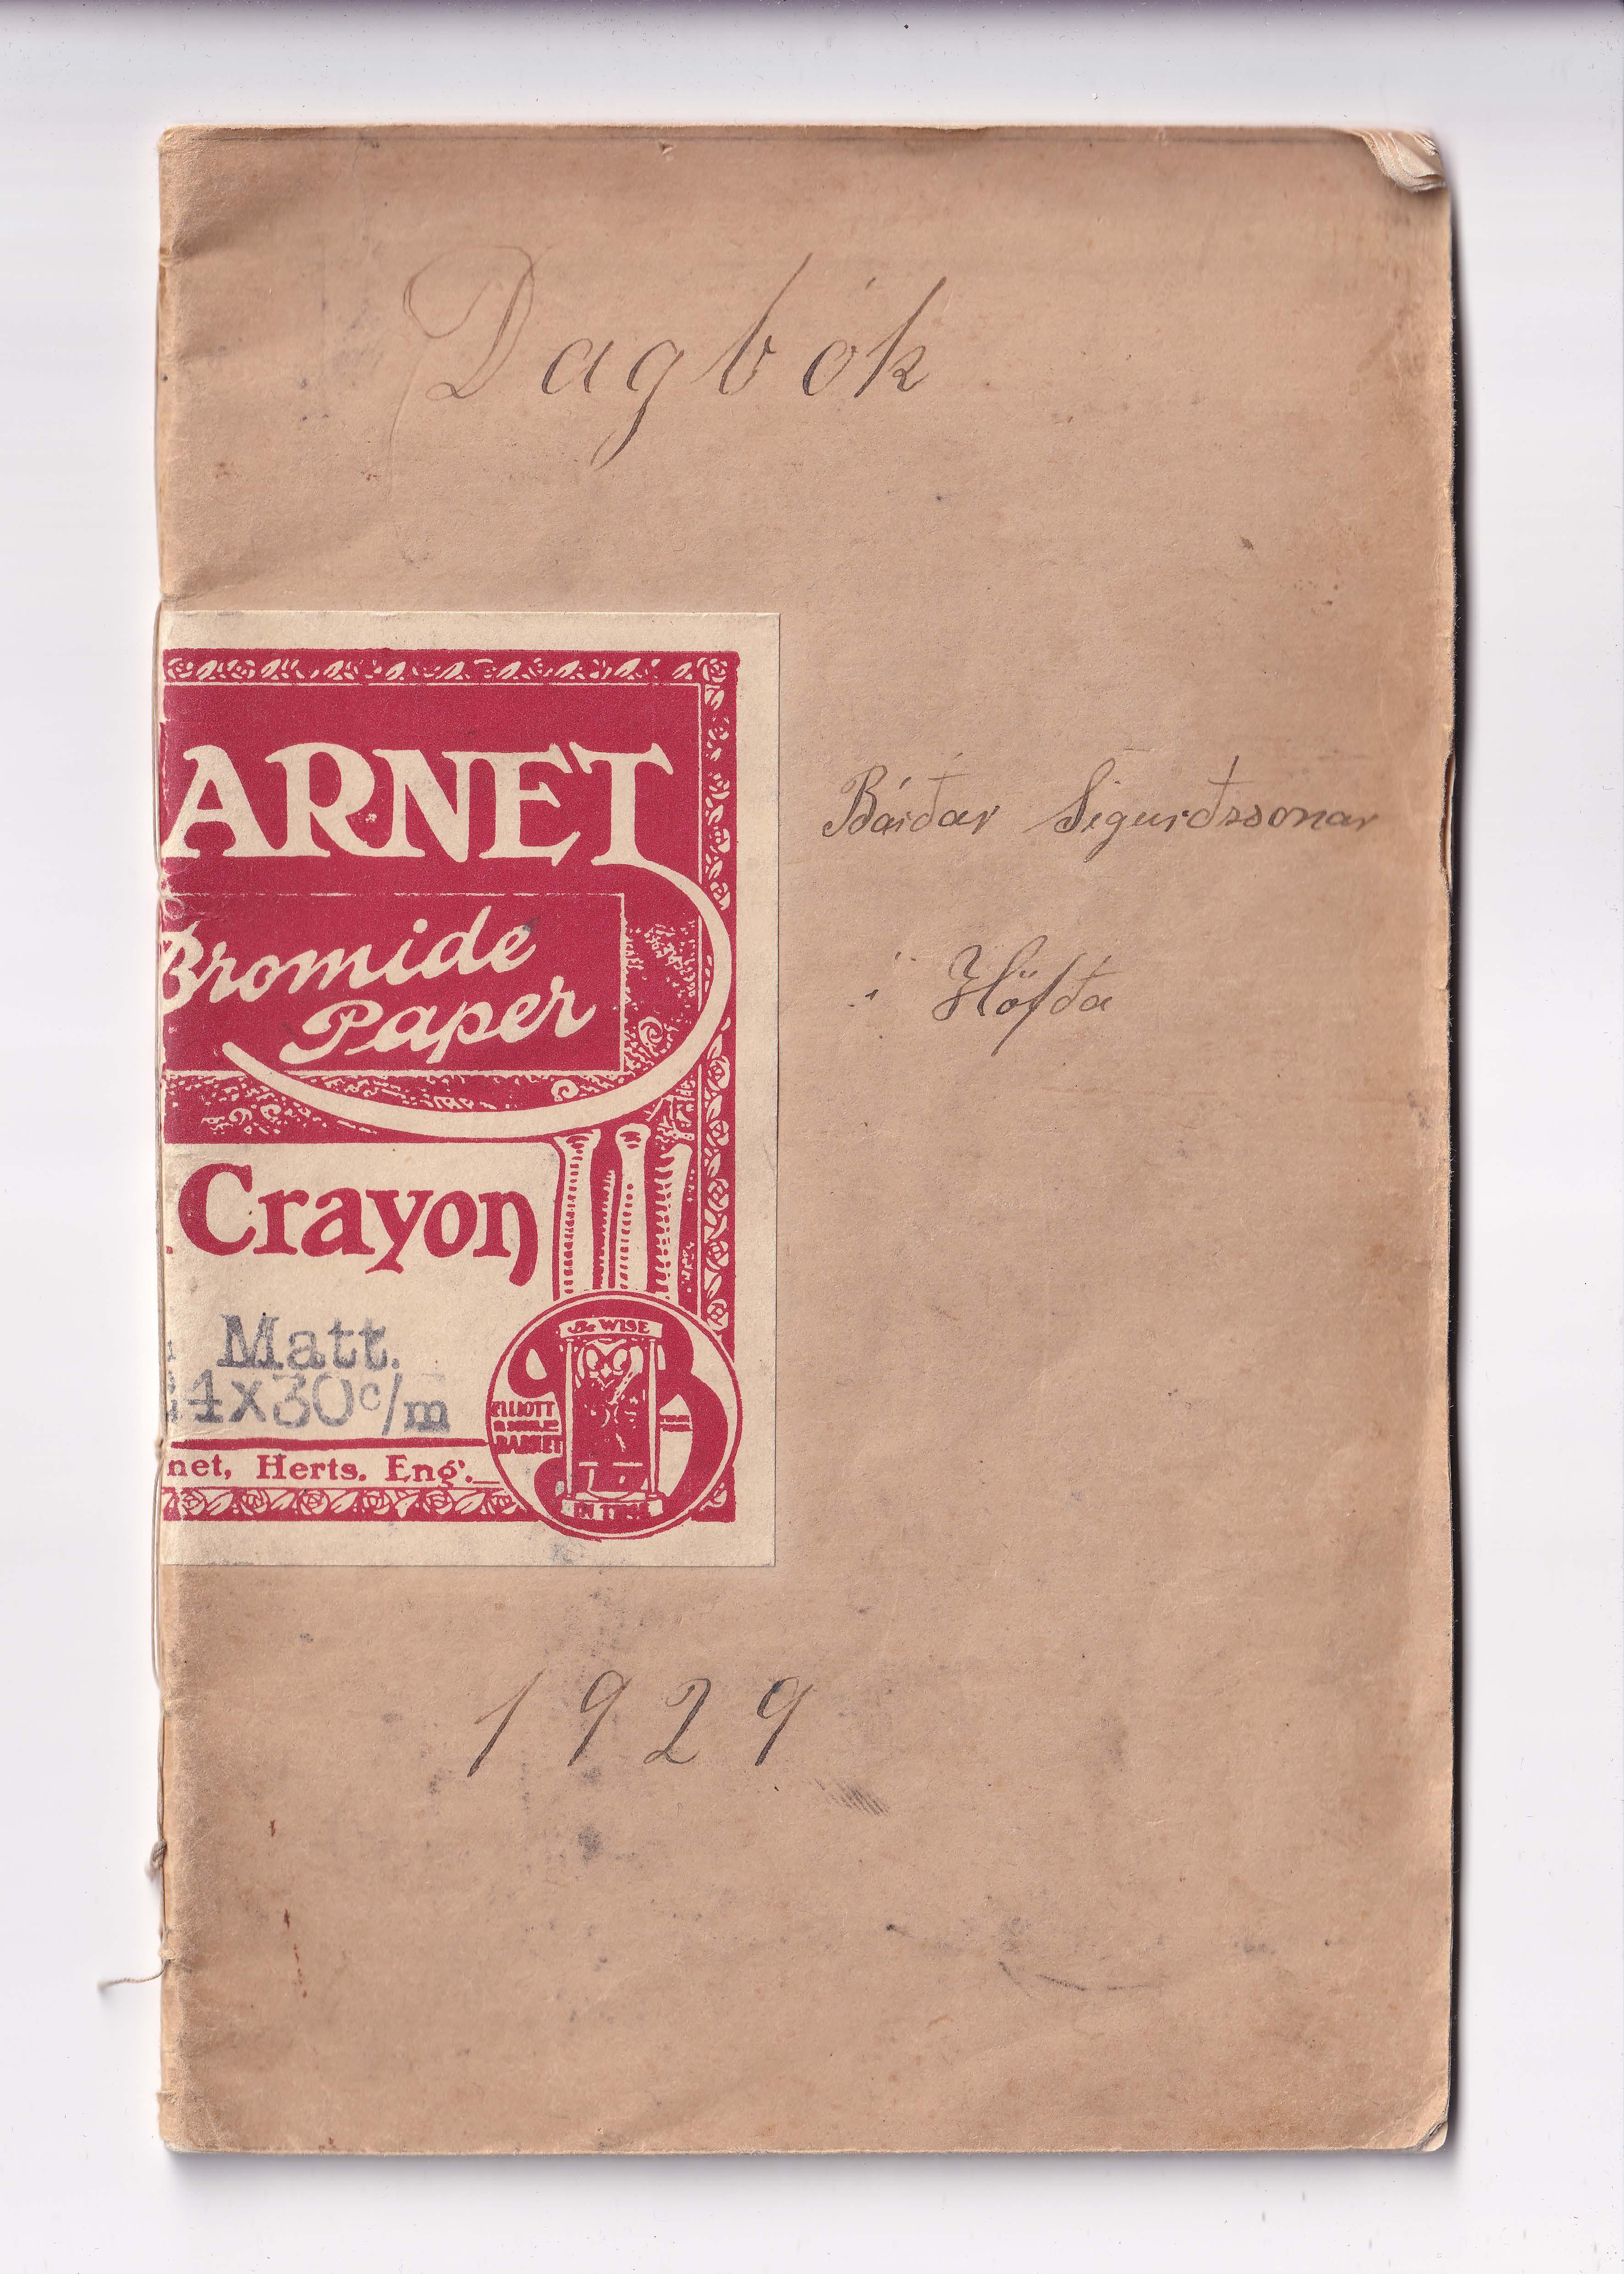 Dagbók
ARNET
Bromide
Paper
Bárðar Sigurðssonar
í Höfða
Crayon
Matt.
4x30c/m
Be WISE
ELLIOTT
BARNET
IN TIME
net, Herts. Eng.
1929